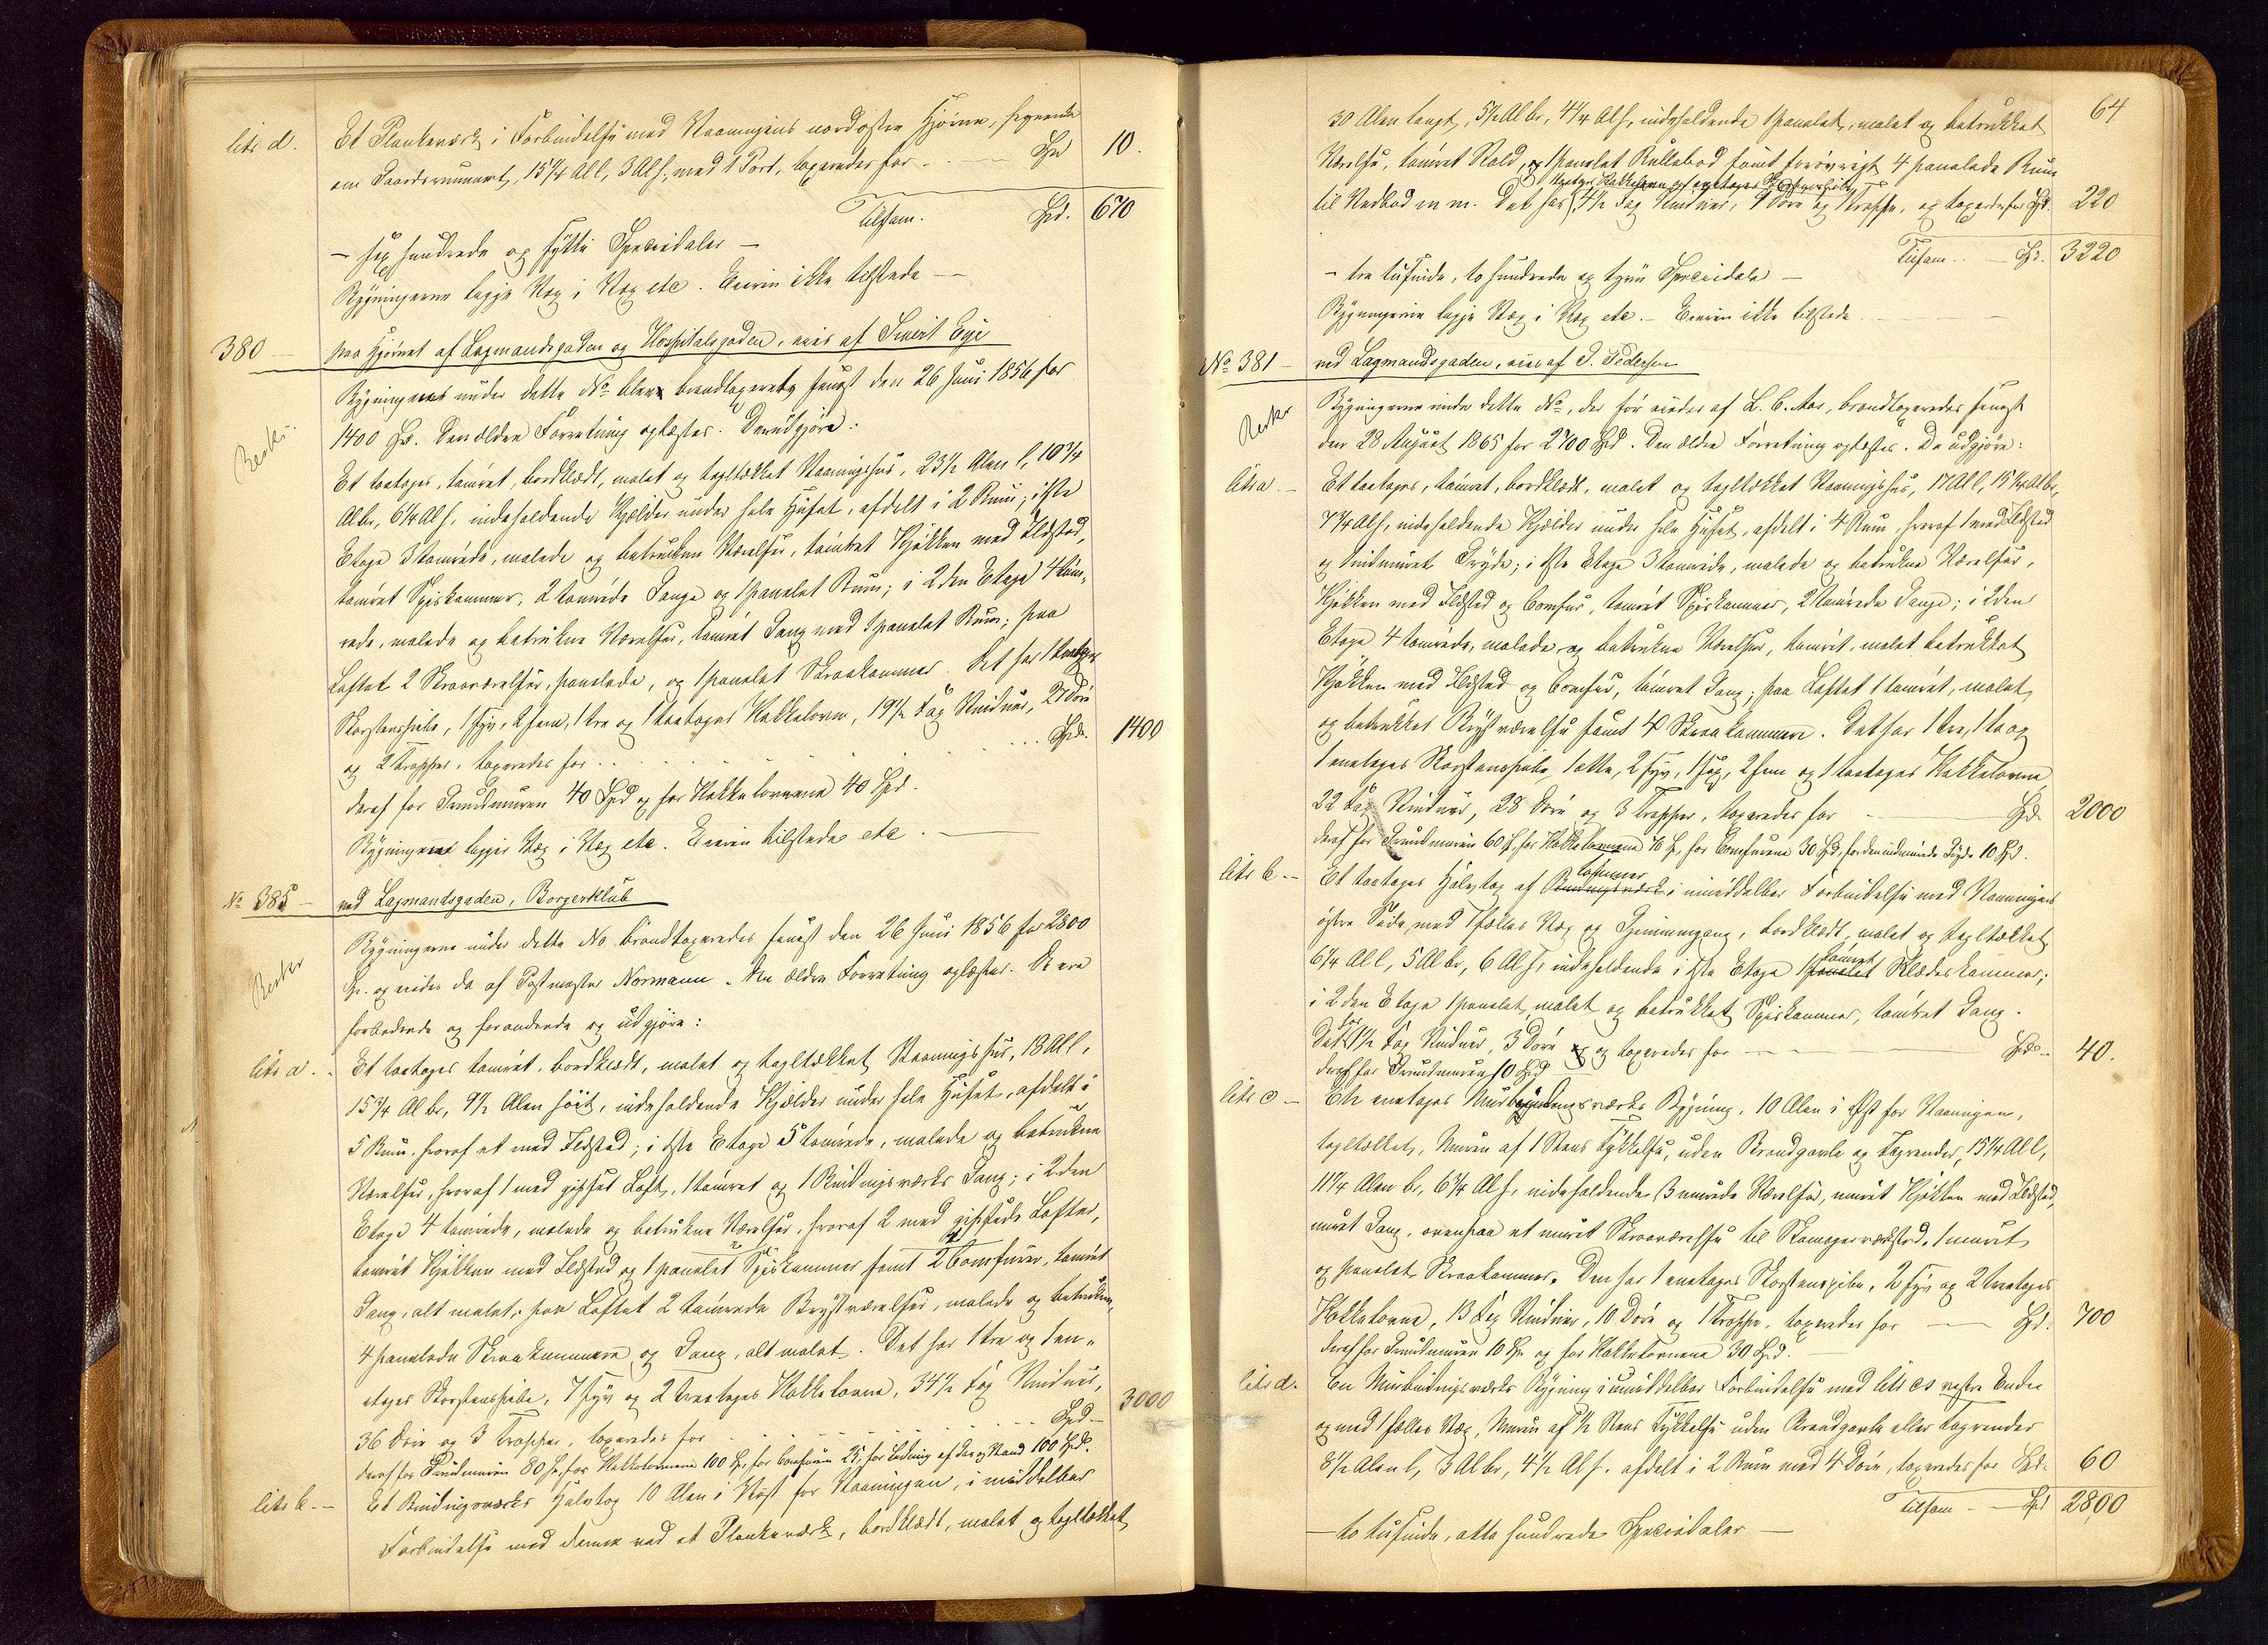 litr d. Et Plankeværk i Forbindelse med Vaaningens nordøstre Hjørne, hegnende
om Gaardsrummet, 15¼ Al l, 3 Al h, med 1 Port, taxeredes for - - - Spd 10.
Tilsam. Spd. 670
- sex hundrede og sytti Speciedaler -
Bygningerne ligge Væg i Væg etc. Eieren ikke tilstede -
380 - paa Hjørnet af Lagmandsgaden og Hospitalsgaden, eies af Sivert Eye
Beskr. Bygningens under dette No blev brandtaxerede senest den 26 Juni 1856 for
1400 Spd. Den ældre Forretning oplæstes. Den udgjøre:
Et toetages, tømret, bordklædt, malet og tegltækket Vaaningshus, 23½ Alen l, 10¾
Al br, 6¼ Al h, indeholdende Kjælder under hele Huset, afdelt i 2 Rum; i 1ste
Etage 3 tømrede, malede og betrukkne Værelser, tømret Kjøkken med Ildsted,
tømret Spiskammer, 2 tømrede Gange og 1 panelet Rum; i 2den Etage 4 tøm-
rede, malede og betrukne Værelser, tømret Gang med 1 panelet Rum; paa
Loftet 2 Skraaværelser, panelede, og 1 panelet Skraakammer. Det har 1 toetages
Skorstenspibe, 1 syv, 2 fem, 1 tre og 1 toetages Kakkelovn, 19½ Fag Vinduer, 21 Døre
og 2 Trapper, taxeredes for - - - Spd. 1400
deraf for Grundmuren 40 Spd og for Kakkelovnene 40 Spd.
Bygningen ligger Væg i Væg etc. Eieren tilstede etc. -
No 385 - ved Lagmandsgaden, Borgerklub
Beskr Bygningerne under dette No brandtaxeredes senest den 26 Juni 1856 for 2800
Sp. og eiedes da af Postmester Normann. Den ældre Forretning oplæstes. De ere
forbedrede og forandrede og udgjøre:
litr a. Et toetages tømret, bordklædt, malet og tegltækket Vaaningshus, 18 Al l,
15¾ Al br, 9½ Alen høit, indeholdende Kjælder under hele Huset, afdelt i
5 Rum, hvoraf et med Ildsted; i 1ste Etage 5 tømrede, malede og betrukne
Værelser, hvoraf 1 med gipset Loft, 1 tømret og 1 Bindingsværks Gang; i 2den
Etage 4 tømrede, malede og betrukne Værelser, hvoraf 2 med gipsede Lofter,
tømret Kjøkken med Ildsted og 1 panelet Spiskammer samt 2 Comfurer, tømret
Gang, alt malet; paa Loftet 2 tømrede Brystværelser, malede og betrukne,
4 panelede Skraakammere og Gang, alt malet. Det har 1 tre og 1 en-
etages Skorstenspibe, 7 syv og 2 treetages Kakkelovne, 34½ Fag Vinduer,
36 Døre og 3 Trapper, taxeredes for - - - Spd - 3000
deraf for Grundmuren 80 Sp, for Kakkelovnene 100 Sp, for Comfuren 25, for Ledning af Gas og Vand 100 Spd.
litr b. - Et Bindingsværks Halvtag 10 Alen i Vest for Vaaningen, i middelbar
Forbindelse med denne ved et Plankeværk, bordklædt, malet og tegltækket
64
30 Alen langt, 5½ Al br, 4¼ Al h, indeholdende 1 panelet, malet og betrukket
Værelse, tømret Stald, og 1 panelet Rullebod samt forøvrigt 4 panelede Rum
til Vedbod m m. Det har 4½ Fag Vinduer, 9 Døre og 1 Trappe, og taxeredes for Spd. 220
Tilsam.. - Spd. 3220
- tre tusinde, to hundrede og tyve Speciedaler -
Bygningerne ligge Væg i Væg etc. - Eieren ikke tilstede. -
No 381 - ved Lagmandsgaden, eies af P. Pedersen
Beskr Bygningerne under dette No, der før eiedes af L. C. Aas, brandtaxeredes senest
den 28 August 1865 for 2700 Spd. Den ældre Forretning oplæstes. De udgjøre:
litr a. - Et toetages, tømret, bordklædt, malet og tegltækket Vaaningshus, 17 Al l, 15¼ Al br,
7¾ Al h, indeholdende Kjælder under hele Huset, afdelt i 4 Rum, hvoraf 1 med Ildsted
og indmuret Gryde; i 1ste Etage 3 tømrede, malede og betrukne Værelser,
Kjøkken med Ildsted og Comfur, tømret Spiskammer, 2 tømrede Gange; i 2den
Etage 4 tømrede, malede og betrukne Værelser, tømret, malet betrukket
Kjøkken med Ildsted og Comfur, tømret Gang; paa Loftet 1 tømret, malet
og betrukket Brystværelse samt 4 Skraakammere. Det har 1 tre, 1 to og
1 enetages Skorstenspibe, 1 otte, 2 syv, 1 sex, 2 fem og 1 toetages Kakkelovne
22 Fag Vinduer, 28 Døre og 3 Trapper, taxeredes for - Spd. 2000
deraf for Grundmuren 60 Sp, for Kakkelovnene 70 Sp, for Comfurene 30 Spd, for den indmurede Gryde 10 Spd.
litr b - - Et toetages Halvtag af Bindingsværk Tømmer i umiddelbar Forbindelse med Vaaningens
østre Side, med 1 fælles Væg og Gjennemgang, bordklædt, malet og tegltækket
6¼ Al l, 5 Al br, 6 Al h, indeholdende i 1ste Etage 1 panelet tømret Klædeskammer;
i 2den Etage 1 panelet, malet og betrukket Spiskammer, tømret Gang.
Det har 1½ Fag Vinduer, 3 Døre og taxeredes for - - - Spd - 40.
deraf for Grundmuren 10 Spd
litr c - En enetages Murbindingsværks Bygning, 10 Alen i Øst for Vaaningen,
tegltækket, Muren af 1 Stens Tykkelse, uden Brandgavle og Tagrender, 15¼ Al l,
11¼ Alen br, 6¾ Al h, indeholdende 3 murede Værelser, muret Kjøkken med Ildsted,
muret Gang, ovenpaa et muret Skraaværelse til Skomagerværksted, 1 muret
og panelet Skraakammer. Den har 1 enetages Skorstenspibe, 2 syv og 2 treetages
Kakkelovne, 13 Fag Vinduer, 10 Døre og 1 Trappe, taxeredes for - Spd. 700
deraf for Grundmuren 10 Sp og for Kakkelovnene 30 Spd. -
litr d. En Murbindingsværks Bygning i umiddelbar Forbindelse med litr cs vestre Ende
og med 1 fælles Væg, Muren af ½ Stens Tykkelse uden Brandgavle eller Tagrender
8½ Alen l, 3 Al br, 4½ Al h. afdelt i 2 Rum med 4 Døre, taxeredes for Spd. 60
Tilsam - - Spd 2800
- to tusinde, otte hundrede Speciedaler -